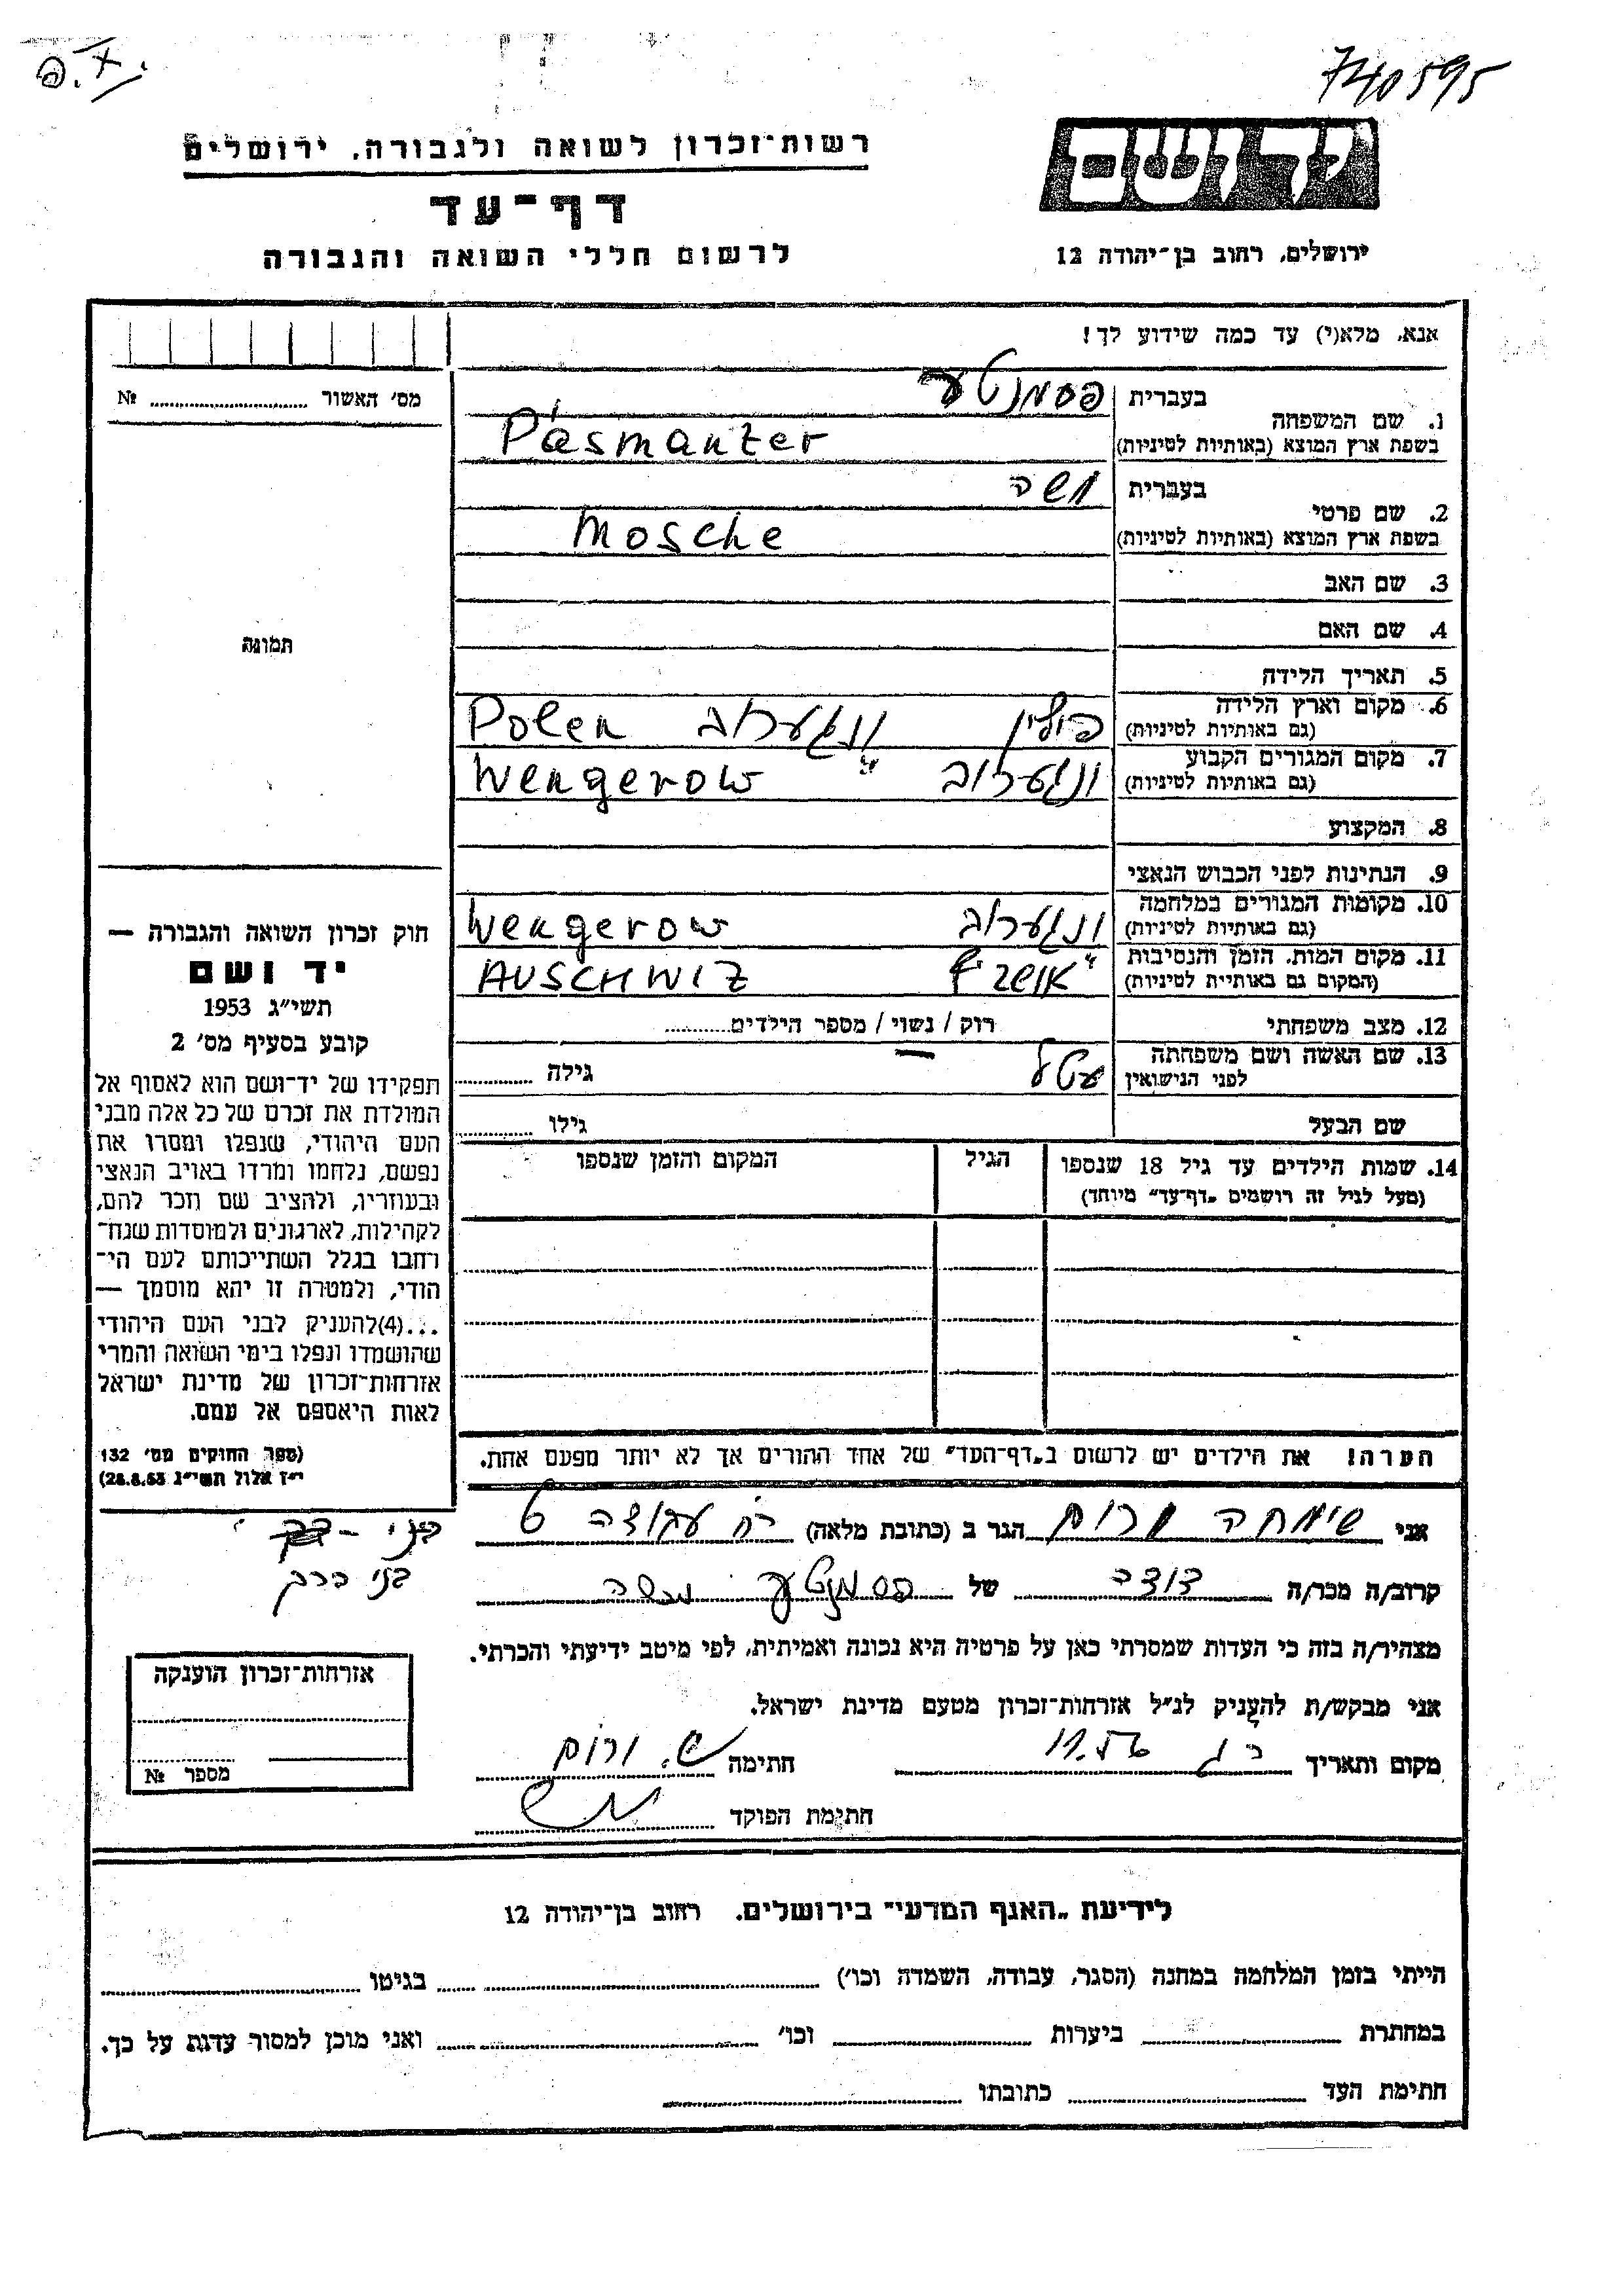 740595
יד ושם
ירושלים, רחוב בן־יהודה 12
רשות־זכרון לשואה ולגבורה, ירושלים
דף־עד
לרשום חללי השואה והגבורה
אנא, מלא(י) עד כמה שידוע לך!
מס' האשור № 
תמונה
1. שם המשפחה
בעברית פסמנטער
בשפת ארץ המוצא (באותיות לטיניות) Pasmanter
2. שם פרטי
בעברית משה
בשפת ארץ המוצא (באותיות לטיניות) Mosche
3. שם האב
4. שם האם
5. תאריך הלידה
6. מקום וארץ הלידה פולין ונגערוב Polen
(גם באותיות לטיניות)
7. מקום המגורים הקבוע ונגערוב Wengerow
(גם באותיות לטיניות)
8. המקצוע
9. הנתינות לפני הכבוש הנאצי
10. מקומות המגורים במלחמה ונגערוב Wengerow
(גם באותיות לטיניות)
11. מקום המות, הזמן והנסיבות AUSCHWIZ
(המקום גם באותיות לטיניות)
12. מצב משפחתי רוק / נשוי / מספר הילדים
13. שם האשה ושם משפחתה עטל גילה
לפני הנישואין
שם הבעל גילו
14. שמות הילדים עד גיל 18 שנספו הגיל המקום והזמן שנספו
(מעל לגיל זה רושמים „דף־עד" מיוחד)
הערה! את הילדים יש לרשום ב„דף־העד" של אחד ההורים אך לא יותר מפעם אחת.
חוק זכרון השואה והגבורה —
יד ושם
תשי"ג 1953
קובע בסעיף מס' 2
תפקידו של יד־ושם הוא לאסוף אל
המולדת את זכרם של כל אלה מבני
העם היהודי, שנפלו ומסרו את
נפשם, נלחמו ומרדו באויב הנאצי
ובעוזריו, ולהציב שם וזכר להם,
לקהילות, לארגונים ולמוסדות שנח־
רבו בגלל השתייכותם לעם הי־
הודי, ולמטרה זו יהא מוסמך —
...(4)להעניק לבני העם היהודי
שהושמדו ונפלו בימי השואה והמרי
אזרחות־זכרון של מדינת ישראל
לאות היאספם אל עמם.
(ספר החוקים מס' 132
י"ז אלול תשי"ג 28.8.53)
אני שימחה ורום הגר ב (כתובת מלאה)
בני ברק
קרוב/ה מכר/ה דודה של פסמנטער משה
מצהיר/ה בזה כי העדות שמסרתי כאן על פרטיה היא נכונה ואמיתית, לפי מיטב ידיעתי והכרתי.
אני מבקש/ת להעניק לנ"ל אזרחות־זכרון מטעם מדינת ישראל.
מקום ותאריך 11.56 חתימה ש. ורום
חתימת הפוקד
אזרחות־זכרון הוענקה
מספר №
לידיעת „האגף המדעי" בירושלים, רחוב בן־יהודה 12
הייתי בזמן המלחמה במחנה (הסגר, עבודה, השמדה וכו') בגיטו
במחתרת ביערות וכו' ואני מוכן למסור עדות על כך.
חתימת העד כתובתו